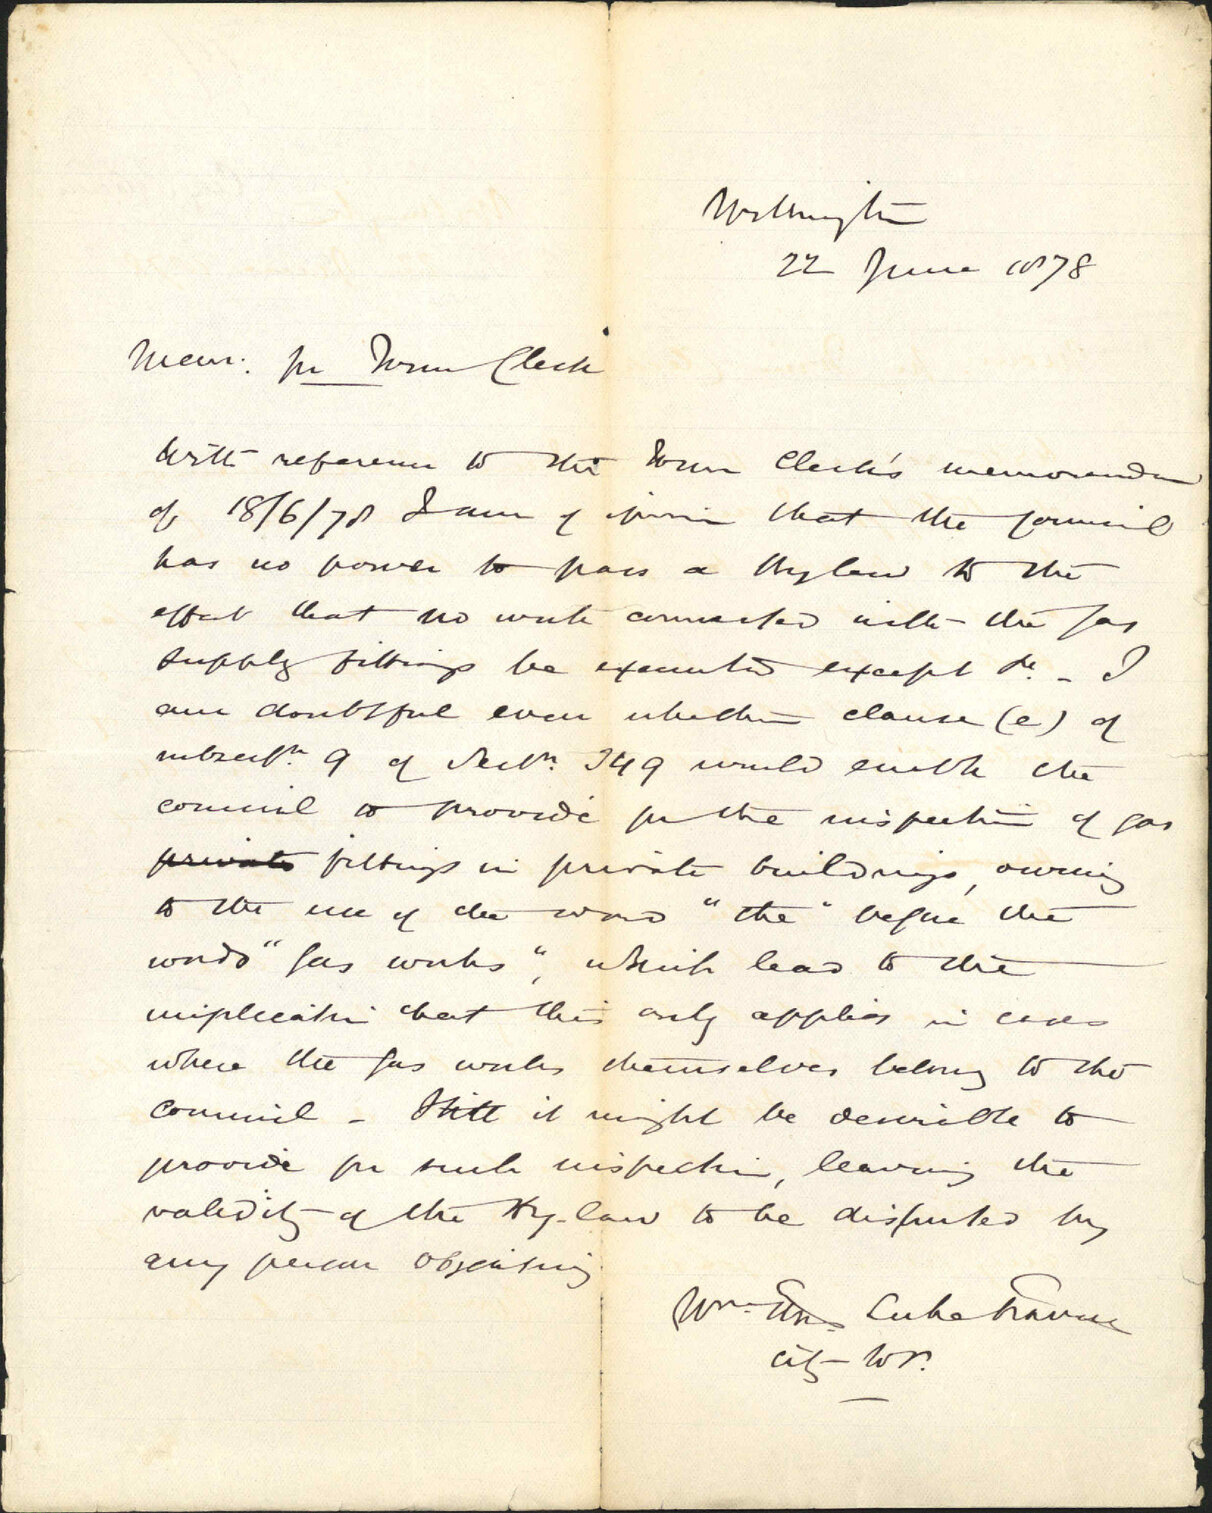 Wellington
22 June 1878
Mem: for Town Clerk
With reference to the Town Clerk's memorandum
of 18/6/78 I am of opinion that the Council
has no power to pass a Bylaw to the
effect that no work connected with the gas
supply fittings be executed except &c. - I
am doubtful even whether clause (e) of
subsectn. 9 of Sectn. 349 would enable the
council to provide for the inspection of gas
private fittings in private buildings, owing
to the use of the word "the" before the
words "gas works", which lead to the
implication that this only applies in cases
where the gas works themselves belong to the
council - Still it might be desirable to
provide for such inspection, leaving the
validity of the By-law to be disputed by
any person objecting
Wm. Thos. Locke Travers
City Sr.